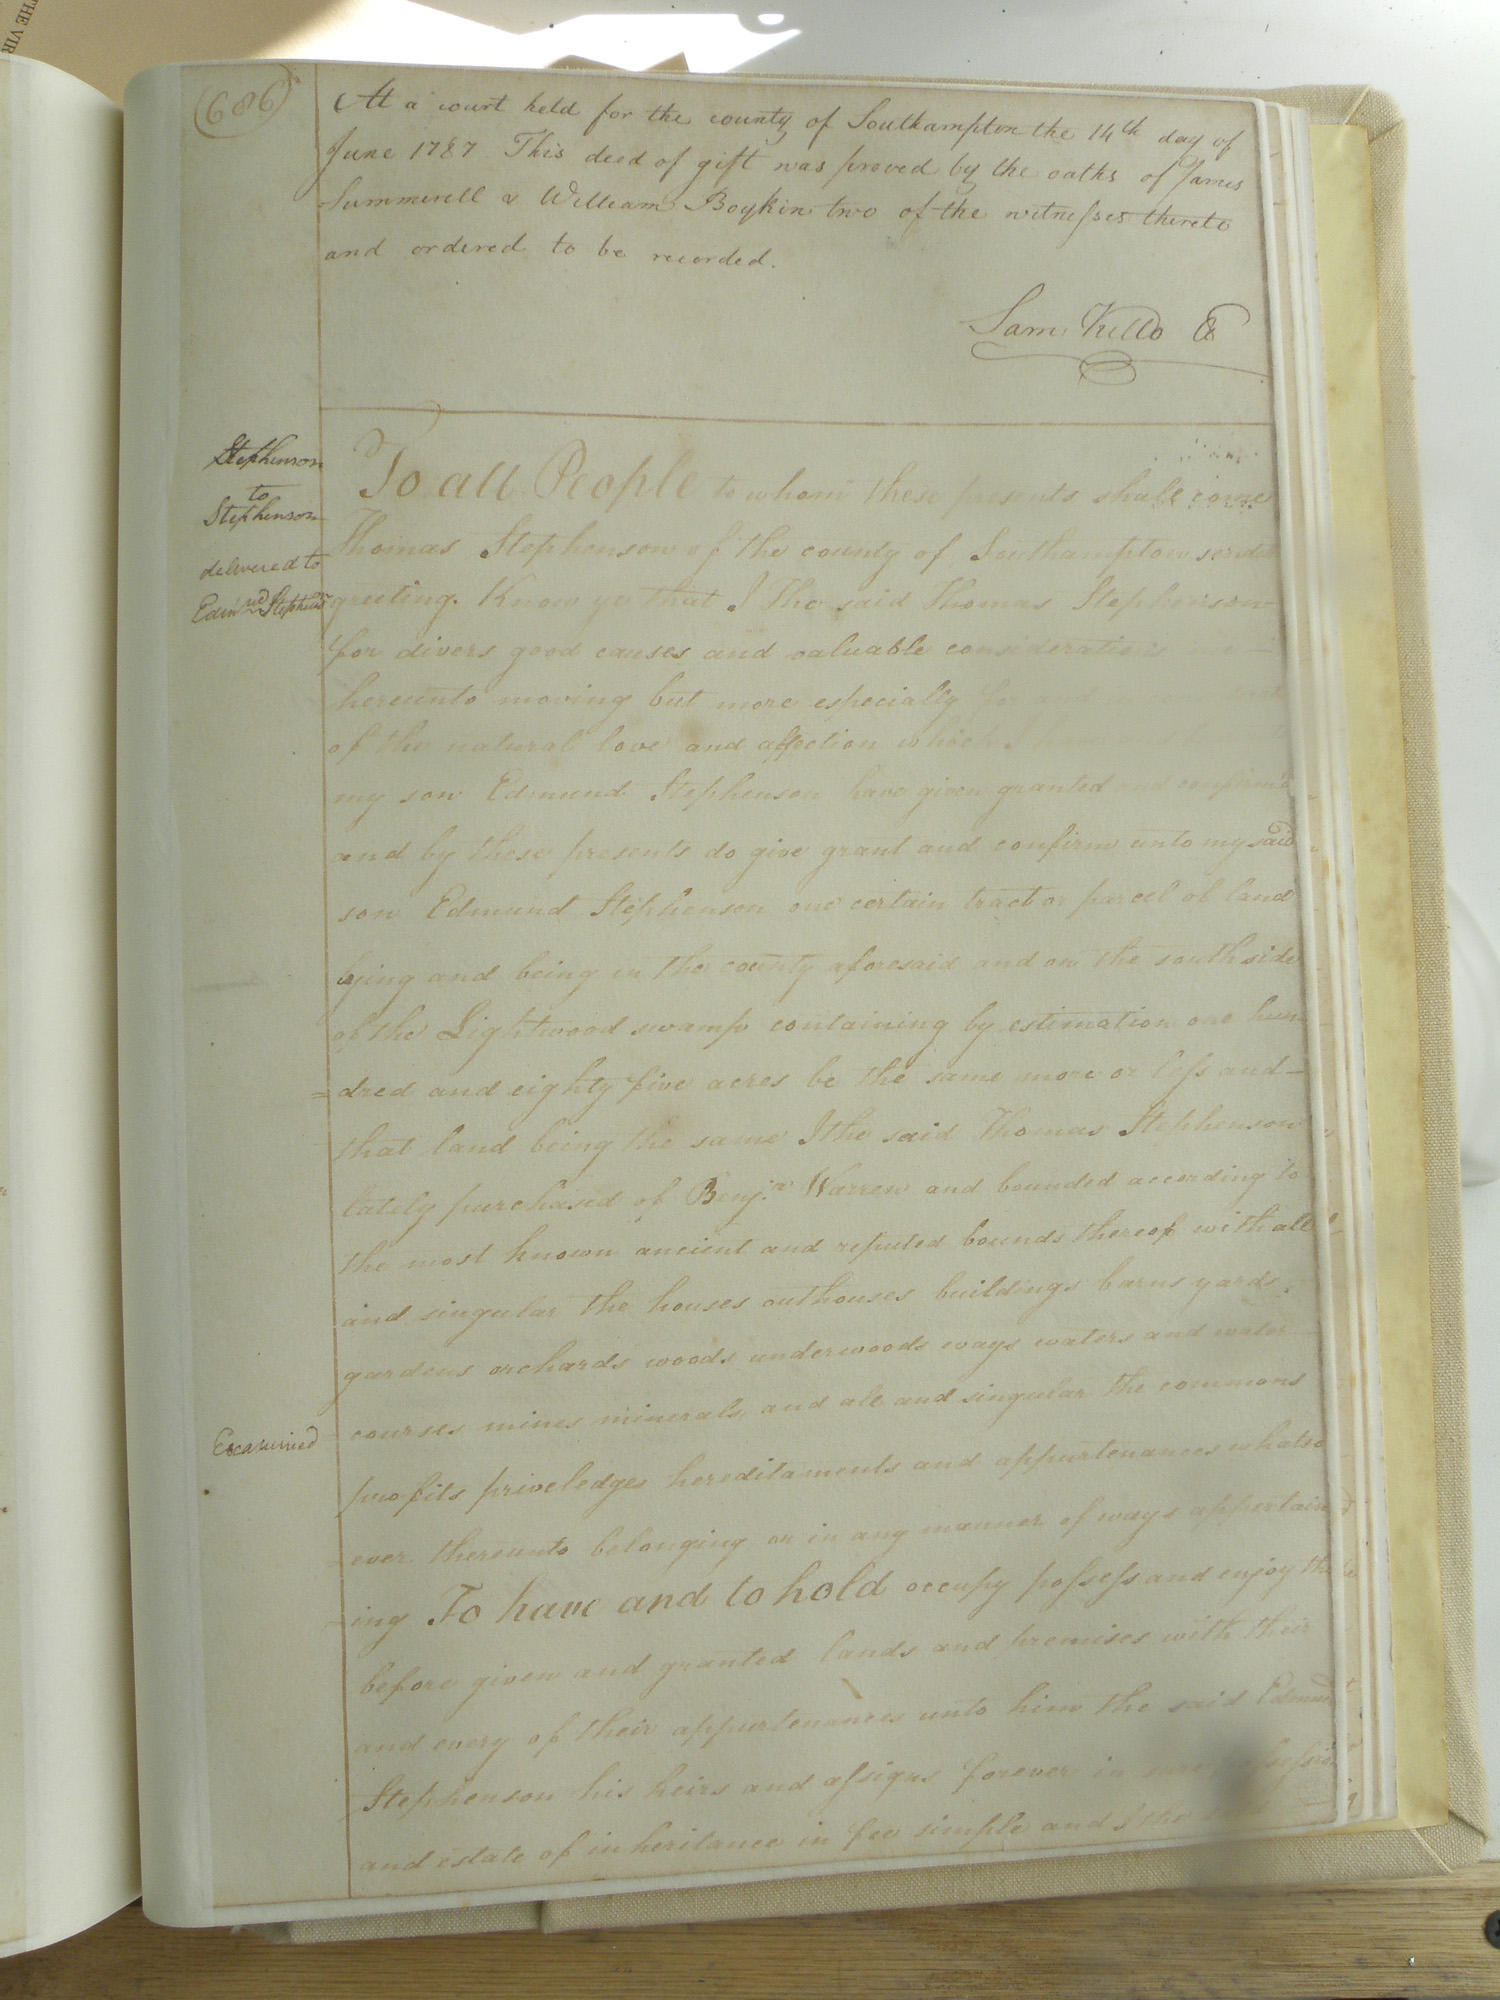 THE VIR
(686)
At a court held for the county of Southampton the 14th day of
June 1787 This deed of gift was proved by the oaths of James
Summerell & William Boykin two of the witnesses thereto
and ordered to be recorded.
Sam Kello
Stephenson
to
Stephenson
delivered to
Edmund Stephenson
To all People to whom these presents shall come
Thomas Stephenson of the county of Southampton sends
greeting. Know ye that I the said Thomas Stephenson
for divers good causes and valuable considerations
hereunto moving but more especially for and
of the natural love and affection which I
my son Edmund Stephenson have given granted and confirm'd
and by these presents do give grant and confirm unto my said
son Edmund Stephenson one certain tract or parcel of land
lying and being in the county aforesaid and on the south side
of the Lightwood swamp containing by estimation one hun
=dred and eighty five acres be the same more or less and-
that land being the same I the said Thomas Stephenson
lately purchased of Benj.n Warren and bounded according to
the most known ancient and reputed bounds thereof with all
and singular the houses outhouses buildings barns yards
gardens orchards woods underwoods ways waters and water
courses mines minerals and all and singular the commons
Examined
profits priveledges hereditaments and appurtenances whatso
=ever thereunto belonging or in any manner of ways appertain
=ing To have and to hold occupy possess and enjoy the
before given and granted lands and premises with their
and every of their appurtenances unto him the said Edmund
Stephenson his heirs and assigns forever in
and estate of inheritance in fee simple and I the